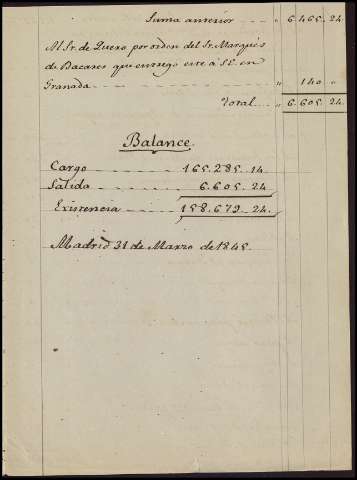 Suma anterior - - - „ 6.465. 24
Al Sr. de Quero por orden del Sr. Marqués
de Bacares que entregó este á S.E. en
Granada - - - - „ 140 „
Total - - „ 6.605. 24.
Balance.
Cargo - - - - 165.285. 14.
Salida - - - - 6.605. 24
Existencia - - - - 158.679. 24.
Madrid 31 de Marzo de 1845.